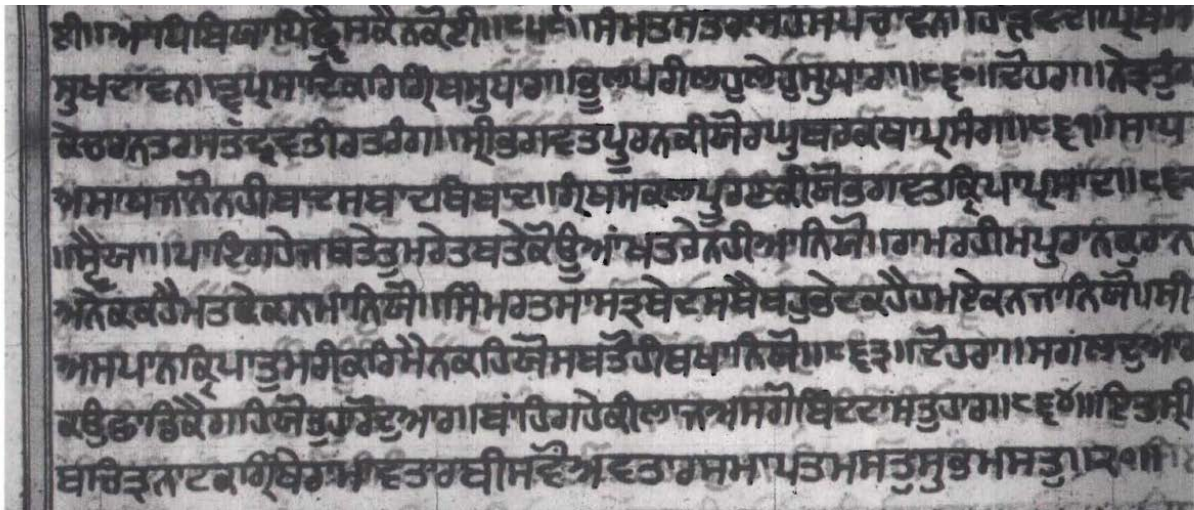 ਈ॥ਅਸਾਧਿਬਿਖਾਧਿਛ੍ਵੈਸਕੈਨਕੋਈ॥੮੫੯॥ਸੰਮਤਸਤ੍ਰਾਸਹਸਪਚਾਵਨ॥ਹਾੜਵਦੀਪ੍ਰਿਥਮ
ਸੁਖਦਾਵਨ॥ਤ੍ਵਪ੍ਰਸਾਦਿਕਰਿਗ੍ਰੰਥਸੁਧਾਰਾ॥ਭੂਲਪਰੀਲਹੁਲੇਹੁਸੁਧਾਰਾ॥੮੬੦॥ਦੋਹਰਾ॥ਨੇਤ੍ਰਤੁੰਗ
ਕੇਚਰਨਤਰਸਤਦ੍ਰਵਤੀਰਤਰੰਗ॥ਸ੍ਰੀਭਗਵਤਪੂਰਨਕੀਯੋਰਘੁਬਰਕਥਾਪ੍ਰਸੰਗ॥੮੬੧॥ਸਾਧ
ਅਸਾਧਜਾਨੋਨਹੀਬਾਦਸਬਾਦਬਿਬਾਦ॥ਗ੍ਰੰਥਸਕਲਪੂਰਣਕੀਯੋਭਗਵਤਕ੍ਰਿਪਾਪ੍ਰਸਾਦ॥੮੬੨
॥ਸ੍ਵੈਯਾ॥ਪਾਇਗਹੇਜਬਤੇਤੁਮਰੇਤਬਤੇਕੋਊਆਂਖਤਰੇਨਹੀਆਨਿਯੋ॥ਰਾਮਰਹੀਮਪੁਰਾਨਕੁਰਾਨ
ਅਨੇਕਕਹੈਮਤਏਕਨਮਾਨਿਯੋ॥ਸਿੰਮਰਤਸਾਸਤ੍ਰਬੇਦਸਬੈਬਹੁਭੇਦਕਹੈਹਮਏਕਨਜਾਨਿਯੋ॥ਸ੍ਰੀ
ਅਸਪਾਨਕ੍ਰਿਪਾਤੁਮਰੀਕਰਿਮੈਨਕਹਿਯੋਸਬਤੋਹੀਬਖਾਨਿਯੋ॥੮੬੩॥ਦੋਹਰਾ॥ਸਗਲਦੁਆਰ
ਕਉਛਾਡਿਕੈਗਹਿਯੋਤੁਹਾਰੋਦੁਆਰ॥ਬਾਂਹਿਗਹੇਕੀਲਾਜਅਸਗੋਬਿੰਦਦਾਸਤੁਹਾਰ॥੮੬੪॥ਇਤਿਸ੍ਰੀ
ਬਚਿਤ੍ਰਨਾਟਕਗ੍ਰੰਥੇਰਾਮਾਵਤਾਰਬੀਸਵੋਅਵਤਾਰਸਮਾਪਤਮਸਤੁਸੁਭਮਸਤੁ॥੨੦॥